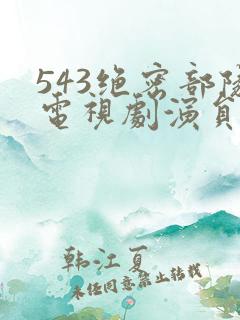 543绝密部隊
電視劇演員
韩江夏
未经同意禁止转载